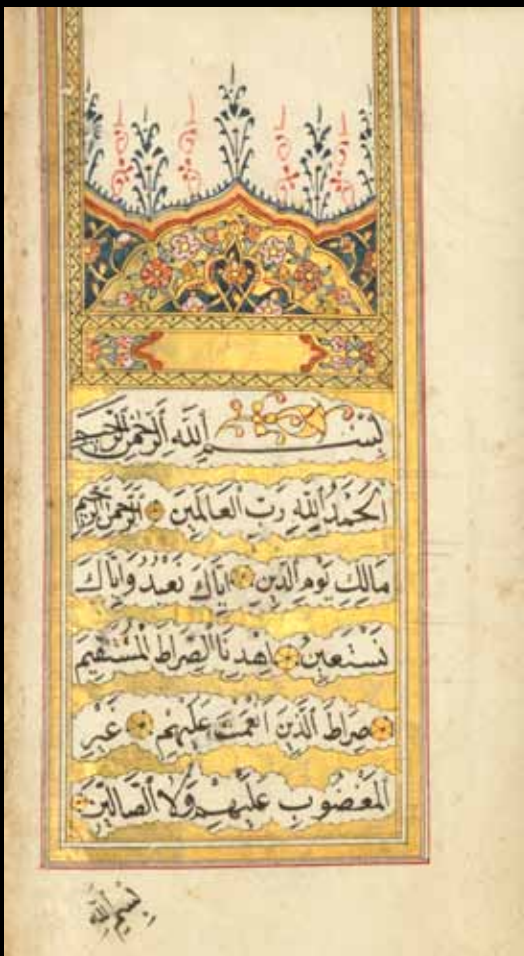 بِسْمِ اللّٰهِ الرَّحْمٰنِ الرَّحِيمِ
اَلْحَمْدُ لِلّٰهِ رَبِّ الْعَالَمِينَ الرَّحْمٰنِ الرَّحِيمِ
مَالِكِ يَوْمِ الدِّينِ اِيَّاكَ نَعْبُدُ وَاِيَّاكَ
نَسْتَعِينُ اِهْدِنَا الصِّرَاطَ الْمُسْتَقِيمَ
صِرَاطَ الَّذِينَ اَنْعَمْتَ عَلَيْهِمْ غَيْرِ
الْمَغْضُوبِ عَلَيْهِمْ وَلَا الضَّالِّينَ
بسم الله